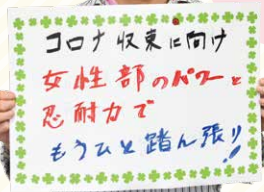 コロナ収束に向け
女性部のパワーと
忍耐力で
もうひと踏ん張り!!